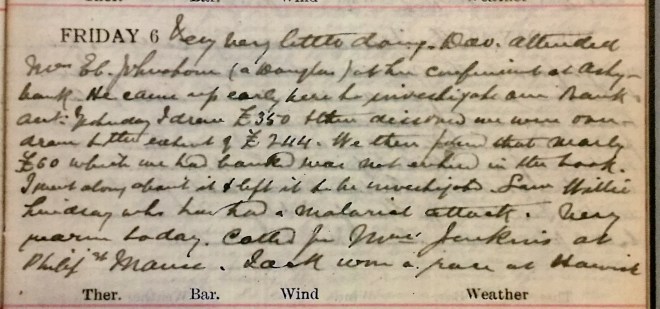 Ther. Bar. Wind Weather
FRIDAY 6 Very very little doing. Dav. attended
Mrs Eb. Johnstone (a Douglas) at her confinement at Ashy-
bank. He came up early here to investigate our Bank
acct: Yesterday I drew £350 & then discovered we were over-
drawn to the extent of £244. We then found that nearly
£60 which we had banked was not entered in the book.
I went along about it & left it to be investigated. Saw Willie
Lindsay who has had a malarial attack. Very
warm today. Called for Mrs Jenkins at
Philip St Manse. Jack won a race at Hawick
Ther. Bar. Wind Weather